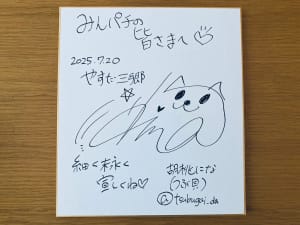 みんパチの
皆さまへ♡
2025.7.20
やすだ三郷
細く末永く
宜しくね♡
胡桃にな
(つぶ貝)
@tsubugai_da